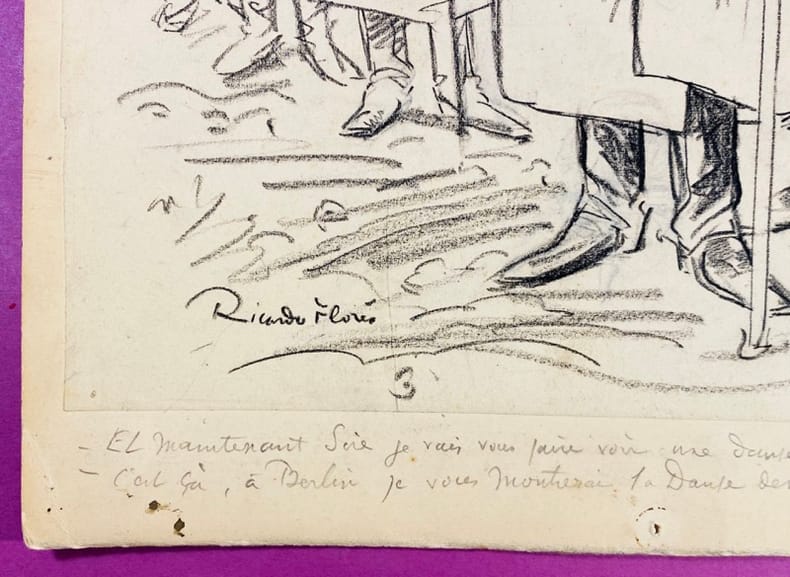 Ricardo Florès
3
- Et maintenant Sire je vais vous faire voir une danse
- C'est ça, à Berlin je vous montrerai la Danse des